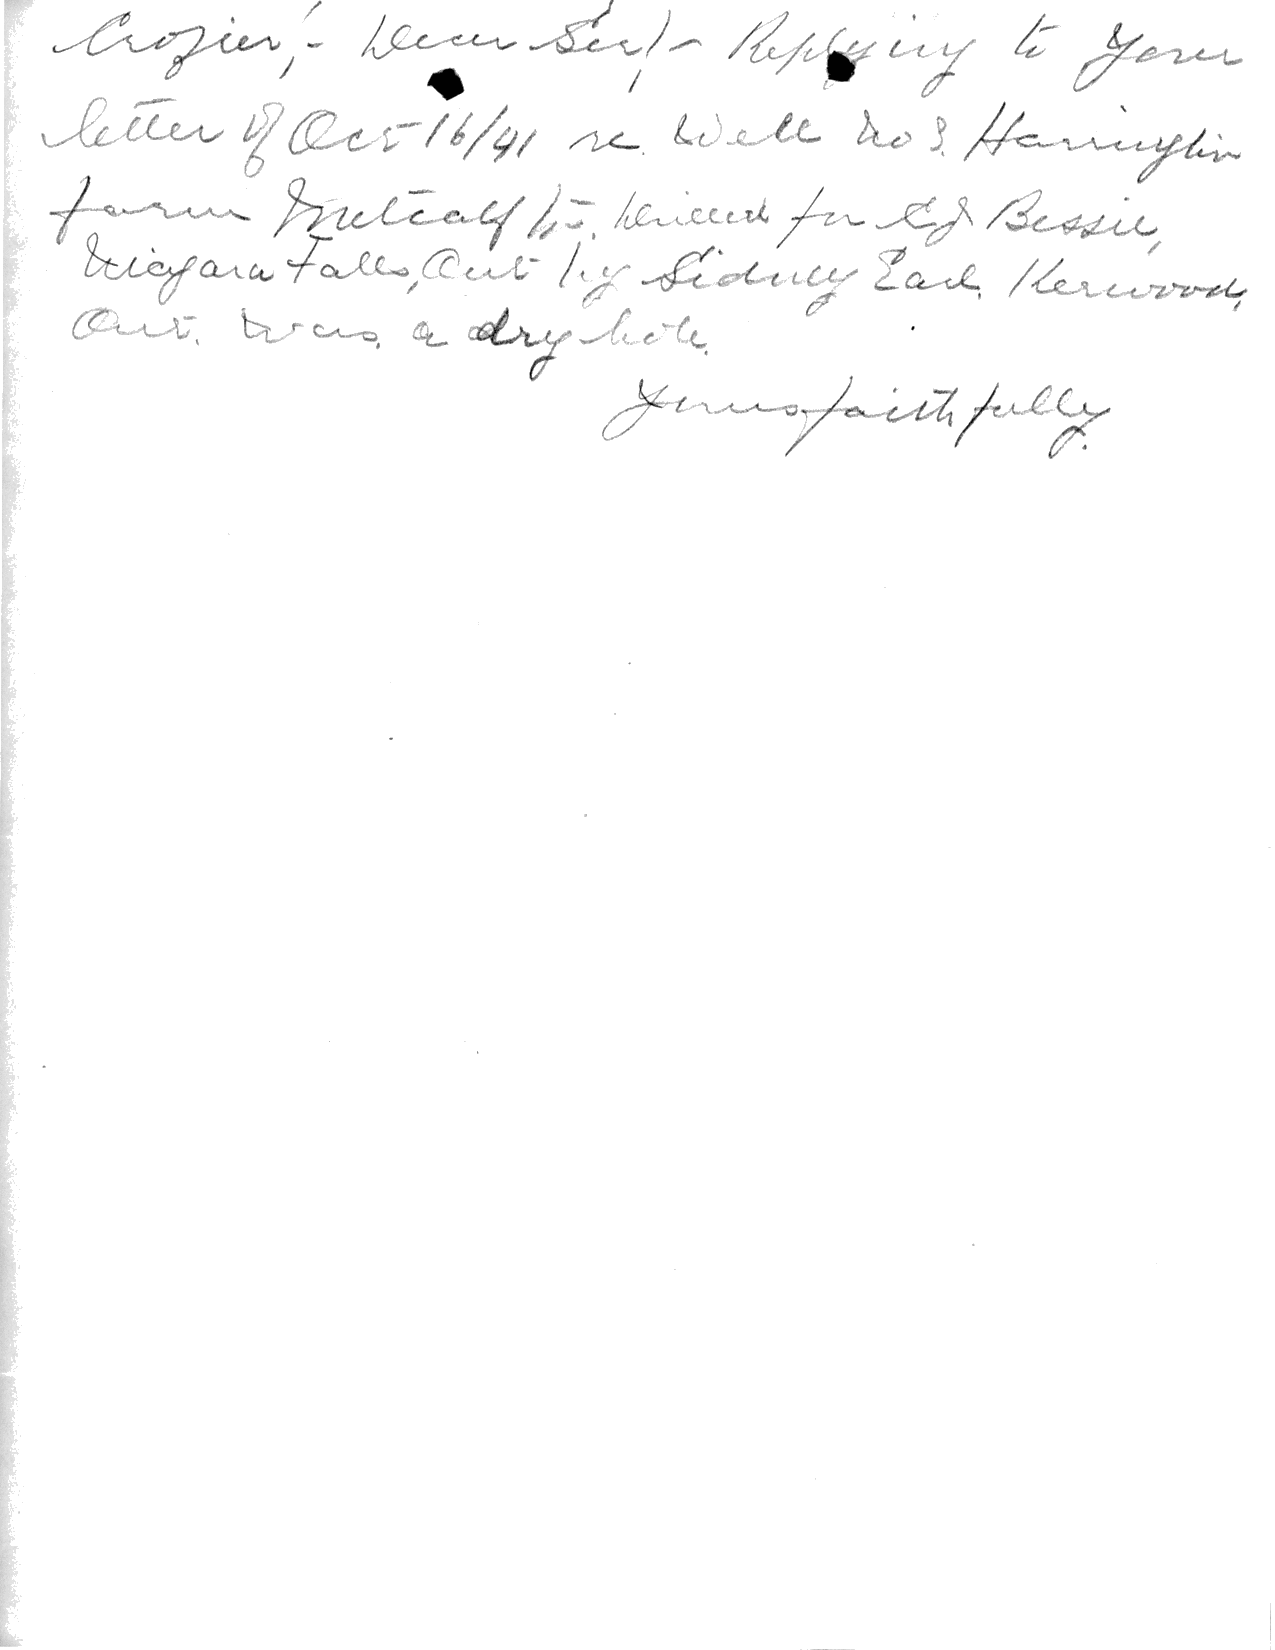 Crozier,- Dear Sir,- Replying to your
letter of Oct 16/41 re. Well No 3. Harrington
farm Metcalf Tp. Drilled for Bessie,
Niagara Falls, Ont by Sidney Earl. Kerwood,
Ont. was a dry hole.
Yours faithfully.